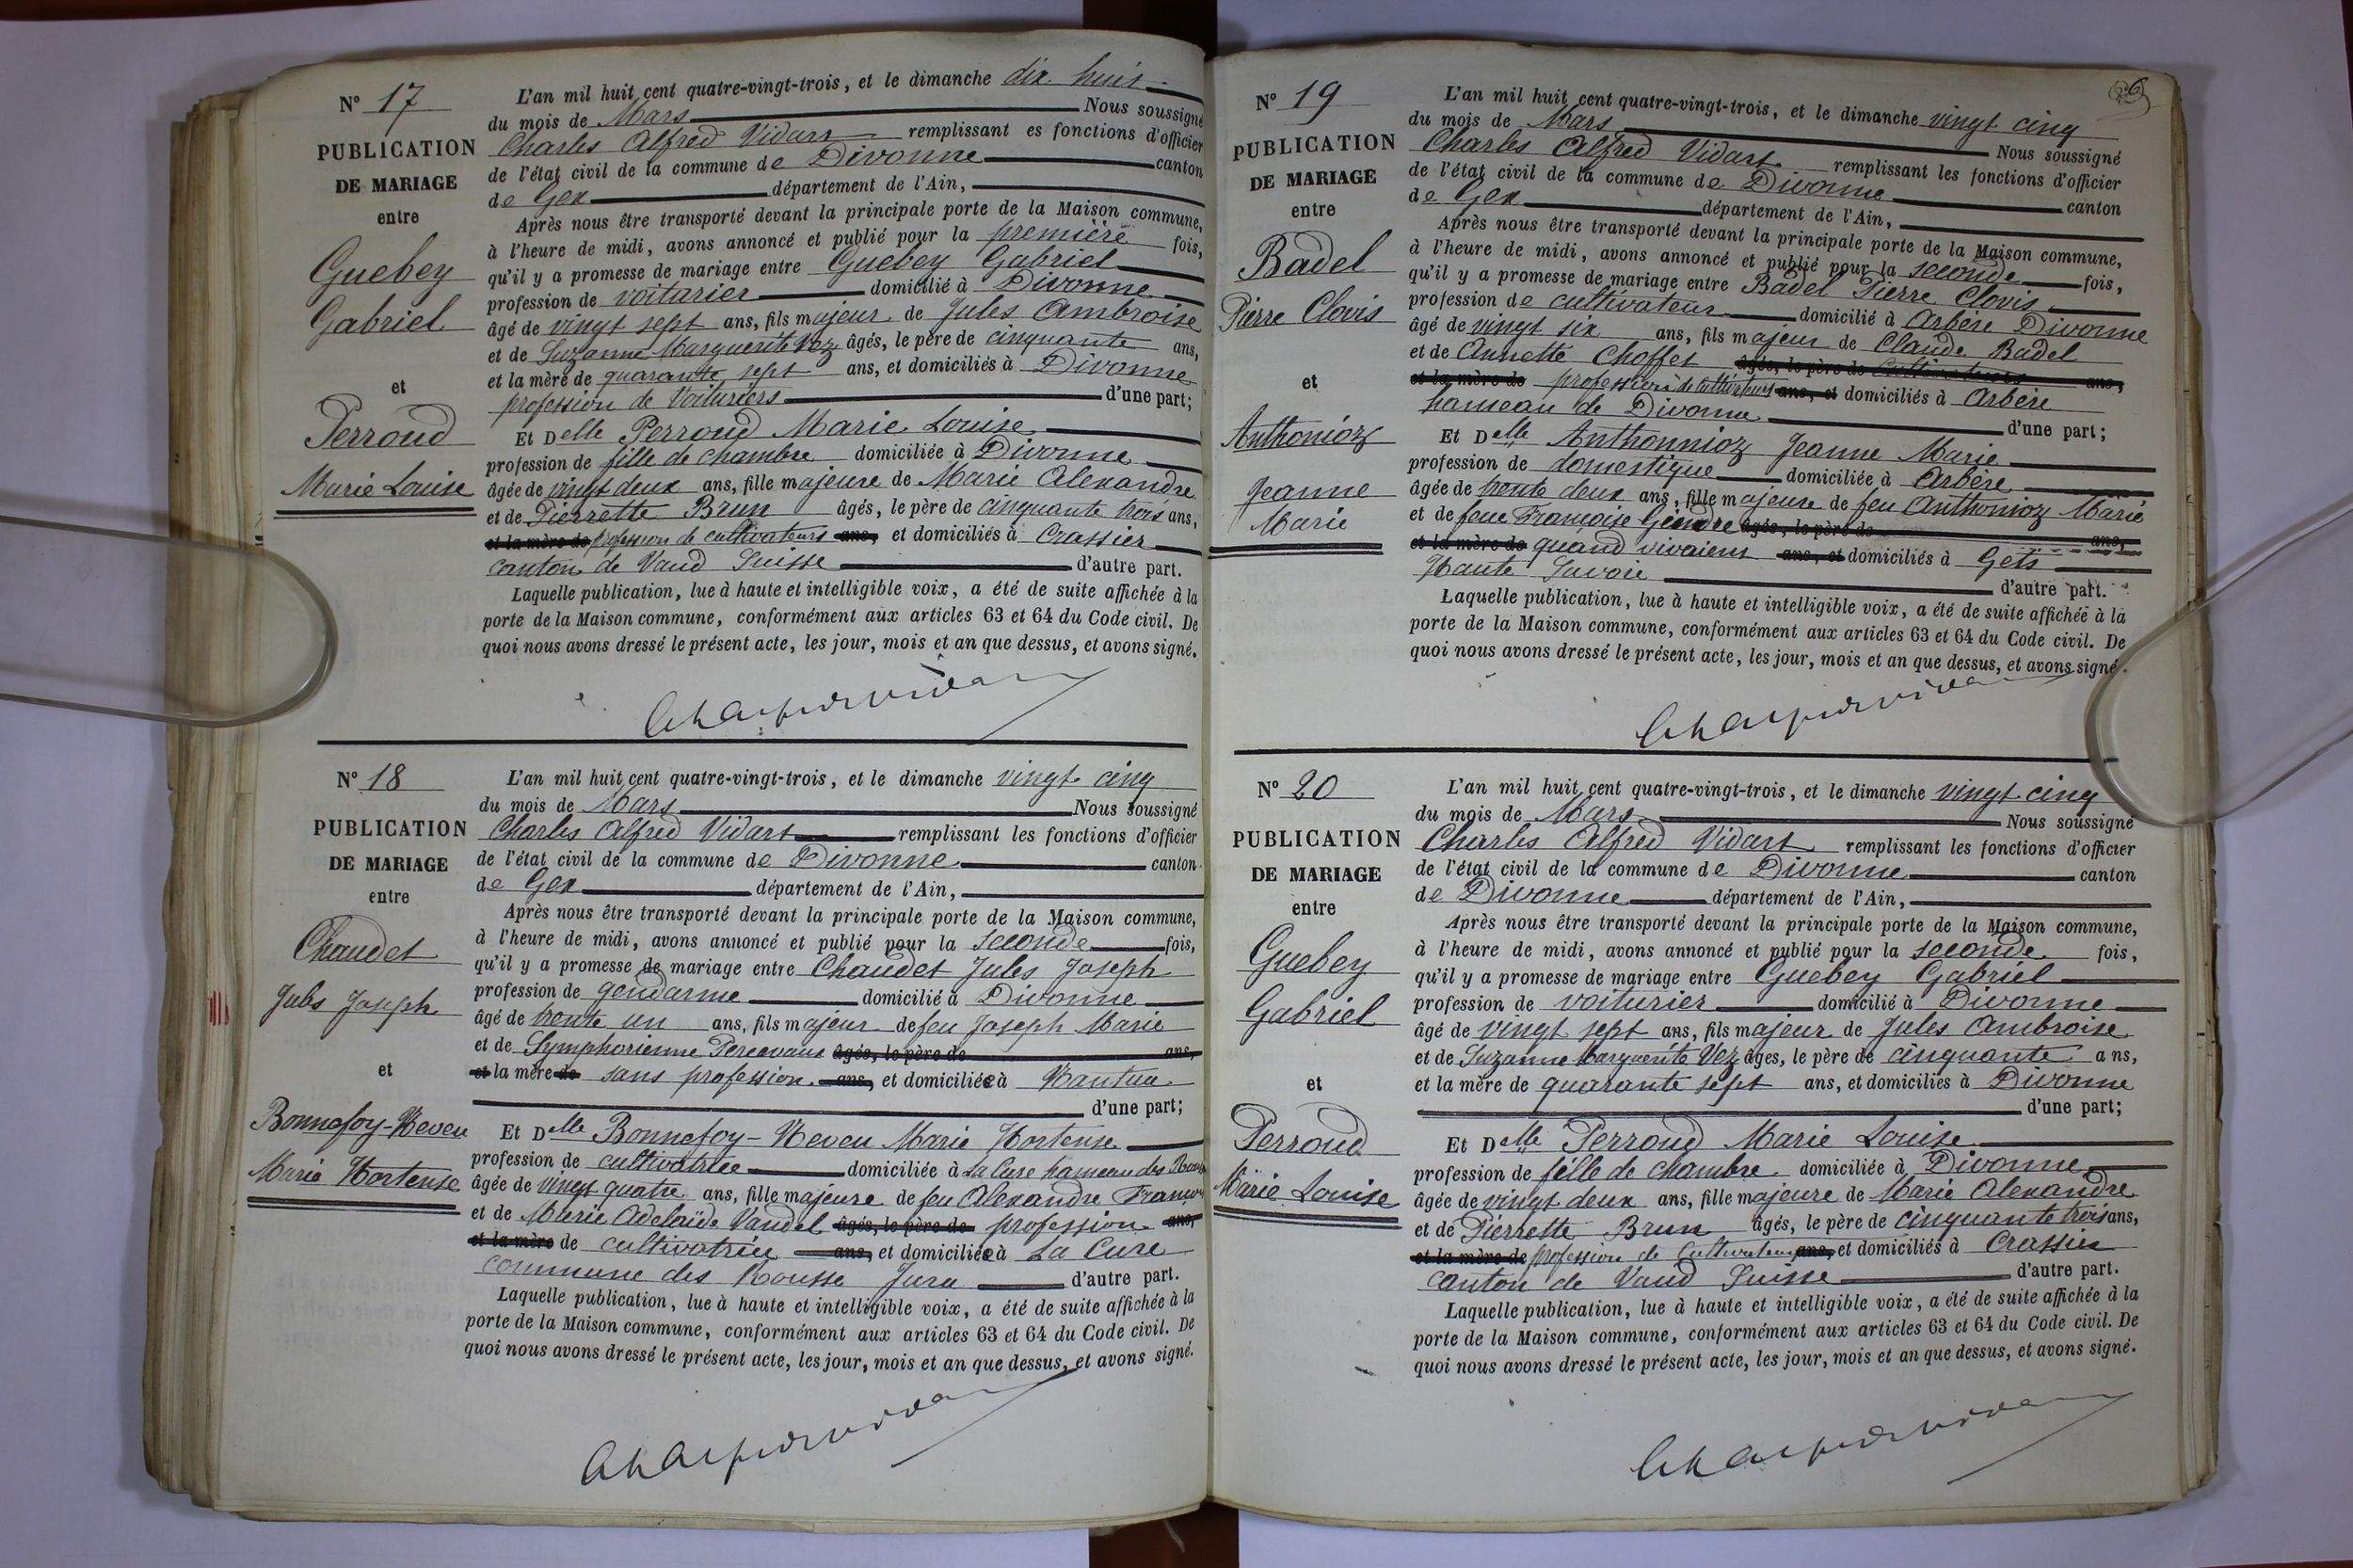 N° 17
PUBLICATION
DE MARIAGE
entre
Guebey
Gabriel
et
Perroud
Marie Louise
L'an mil huit cent quatre-vingt-trois, et le dimanche dix huit
du mois de Mars Nous soussigné
Charles Alfred Vidart remplissant es fonctions d'officier
de l'état civil de la commune de Divonne canton
de Gex département de l'Ain,
Après nous être transporté devant la principale porte de la Maison commune,
à l'heure de midi, avons annoncé et publié pour la première fois,
qu'il y a promesse de mariage entre Guebey Gabriel
profession de voiturier domicilié à Divonne
âgé de vingt sept ans, fils majeur de Jules Ambroise
et de Suzanne Marguerite Vez âgés, le père de cinquante ans,
et la mère de quarante sept ans, et domiciliés à Divonne
profession de Voituriers d'une part;
Et Delle Perroud Marie Louise
profession de fille de chambre domiciliée à Divonne
âgée de vingt deux ans, fille majeure de Marie Alexandre
et de Pierrette Brun âgés, le père de cinquante trois ans,
et la mère de profession de cultivateurs ans, et domiciliés à Crassier
canton de Vaud Suisse d'autre part.
Laquelle publication, lue à haute et intelligible voix, a été de suite affichée à la
porte de la Maison commune, conformément aux articles 63 et 64 du Code civil. De
quoi nous avons dressé le présent acte, les jour, mois et an que dessus, et avons signé.
N° 18
PUBLICATION
DE MARIAGE
entre
Chaudet
Jules Joseph
et
Bonnefoy-Neveu
Marie Hortense
L'an mil huit cent quatre-vingt-trois, et le dimanche vingt cinq
du mois de Mars Nous soussigné
Charles Alfred Vidart remplissant les fonctions d'officier
de l'état civil de la commune de Divonne canton
de Gex département de l'Ain,
Après nous être transporté devant la principale porte de la Maison commune,
à l'heure de midi, avons annoncé et publié pour la seconde fois,
qu'il y a promesse de mariage entre Chaudet Jules Joseph
profession de gendarme domicilié à Divonne
âgé de trente un ans, fils majeur de feu Joseph Marie
et de Symphorienne âgés, le père de ans,
et la mère de sans profession ans, et domiciliée à Nantua
d'une part;
Et Delle Bonnefoy-Neveu Marie Hortense
profession de cultivatrice domiciliée à La Cure hameau des
âgée de vingt quatre ans, fille majeure de feu Alexandre
et de Marie Adelaïde Vandel âgés, le père de profession ans,
et la mère de cultivatrice ans, et domiciliée à La Cure
commune des Rousse Jura d'autre part.
Laquelle publication, lue à haute et intelligible voix, a été de suite affichée à la
porte de la Maison commune, conformément aux articles 63 et 64 du Code civil. De
quoi nous avons dressé le présent acte, les jour, mois et an que dessus, et avons signé.
N° 19
PUBLICATION
DE MARIAGE
entre
Badel
Pierre Clovis
et
Anthonioz
Jeanne
Marie
L'an mil huit cent quatre-vingt-trois, et le dimanche vingt cinq
du mois de Mars Nous soussigné
Charles Alfred Vidart remplissant les fonctions d'officier
de l'état civil de la commune de Divonne canton
de Gex département de l'Ain,
Après nous être transporté devant la principale porte de la Maison commune,
à l'heure de midi, avons annoncé et publié pour la seconde fois,
qu'il y a promesse de mariage entre Badel Pierre Clovis
profession de cultivateur domicilié à Arbère Divonne
âgé de vingt six ans, fils majeur de Claude Badel
et de Annette Choffet âgés, le père de cultivateurs ans,
et la mère de profession de cultivateurs ans, et domiciliés à Arbère
hameau de Divonne d'une part;
Et Delle Anthonnioz Jeanne Marie
profession de domestique domiciliée à Arbère
âgée de trente deux ans, fille majeure de feu Anthonioz Marie
et de feue Françoise âgés, le père de ans,
et la mère de quand vivaient ans, et domiciliés à Gets
Haute Savoie d'autre part.
Laquelle publication, lue à haute et intelligible voix, a été de suite affichée à la
porte de la Maison commune, conformément aux articles 63 et 64 du Code civil. De
quoi nous avons dressé le présent acte, les jour, mois et an que dessus, et avons signé.
N° 20
PUBLICATION
DE MARIAGE
entre
Guebey
Gabriel
et
Perroud
Marie Louise
L'an mil huit cent quatre-vingt-trois, et le dimanche vingt cinq
du mois de Mars Nous soussigné
Charles Alfred Vidart remplissant les fonctions d'officier
de l'état civil de la commune de Divonne canton
de Divonne département de l'Ain,
Après nous être transporté devant la principale porte de la Maison commune,
à l'heure de midi, avons annoncé et publié pour la seconde fois,
qu'il y a promesse de mariage entre Guebey Gabriel
profession de voiturier domicilié à Divonne
âgé de vingt sept ans, fils majeur de Jules Ambroise
et de Suzanne Marguerite Vez âgés, le père de cinquante ans,
et la mère de quarante sept ans, et domiciliés à Divonne
d'une part;
Et Delle Perroud Marie Louise
profession de fille de chambre domiciliée à Divonne
âgée de vingt deux ans, fille majeure de Marie Alexandre
et de Pierrette Brun âgés, le père de cinquante trois ans,
et la mère de profession de Cultivateurs ans, et domiciliés à Crassier
canton de Vaud Suisse d'autre part.
Laquelle publication, lue à haute et intelligible voix, a été de suite affichée à la
porte de la Maison commune, conformément aux articles 63 et 64 du Code civil. De
quoi nous avons dressé le présent acte, les jour, mois et an que dessus, et avons signé.